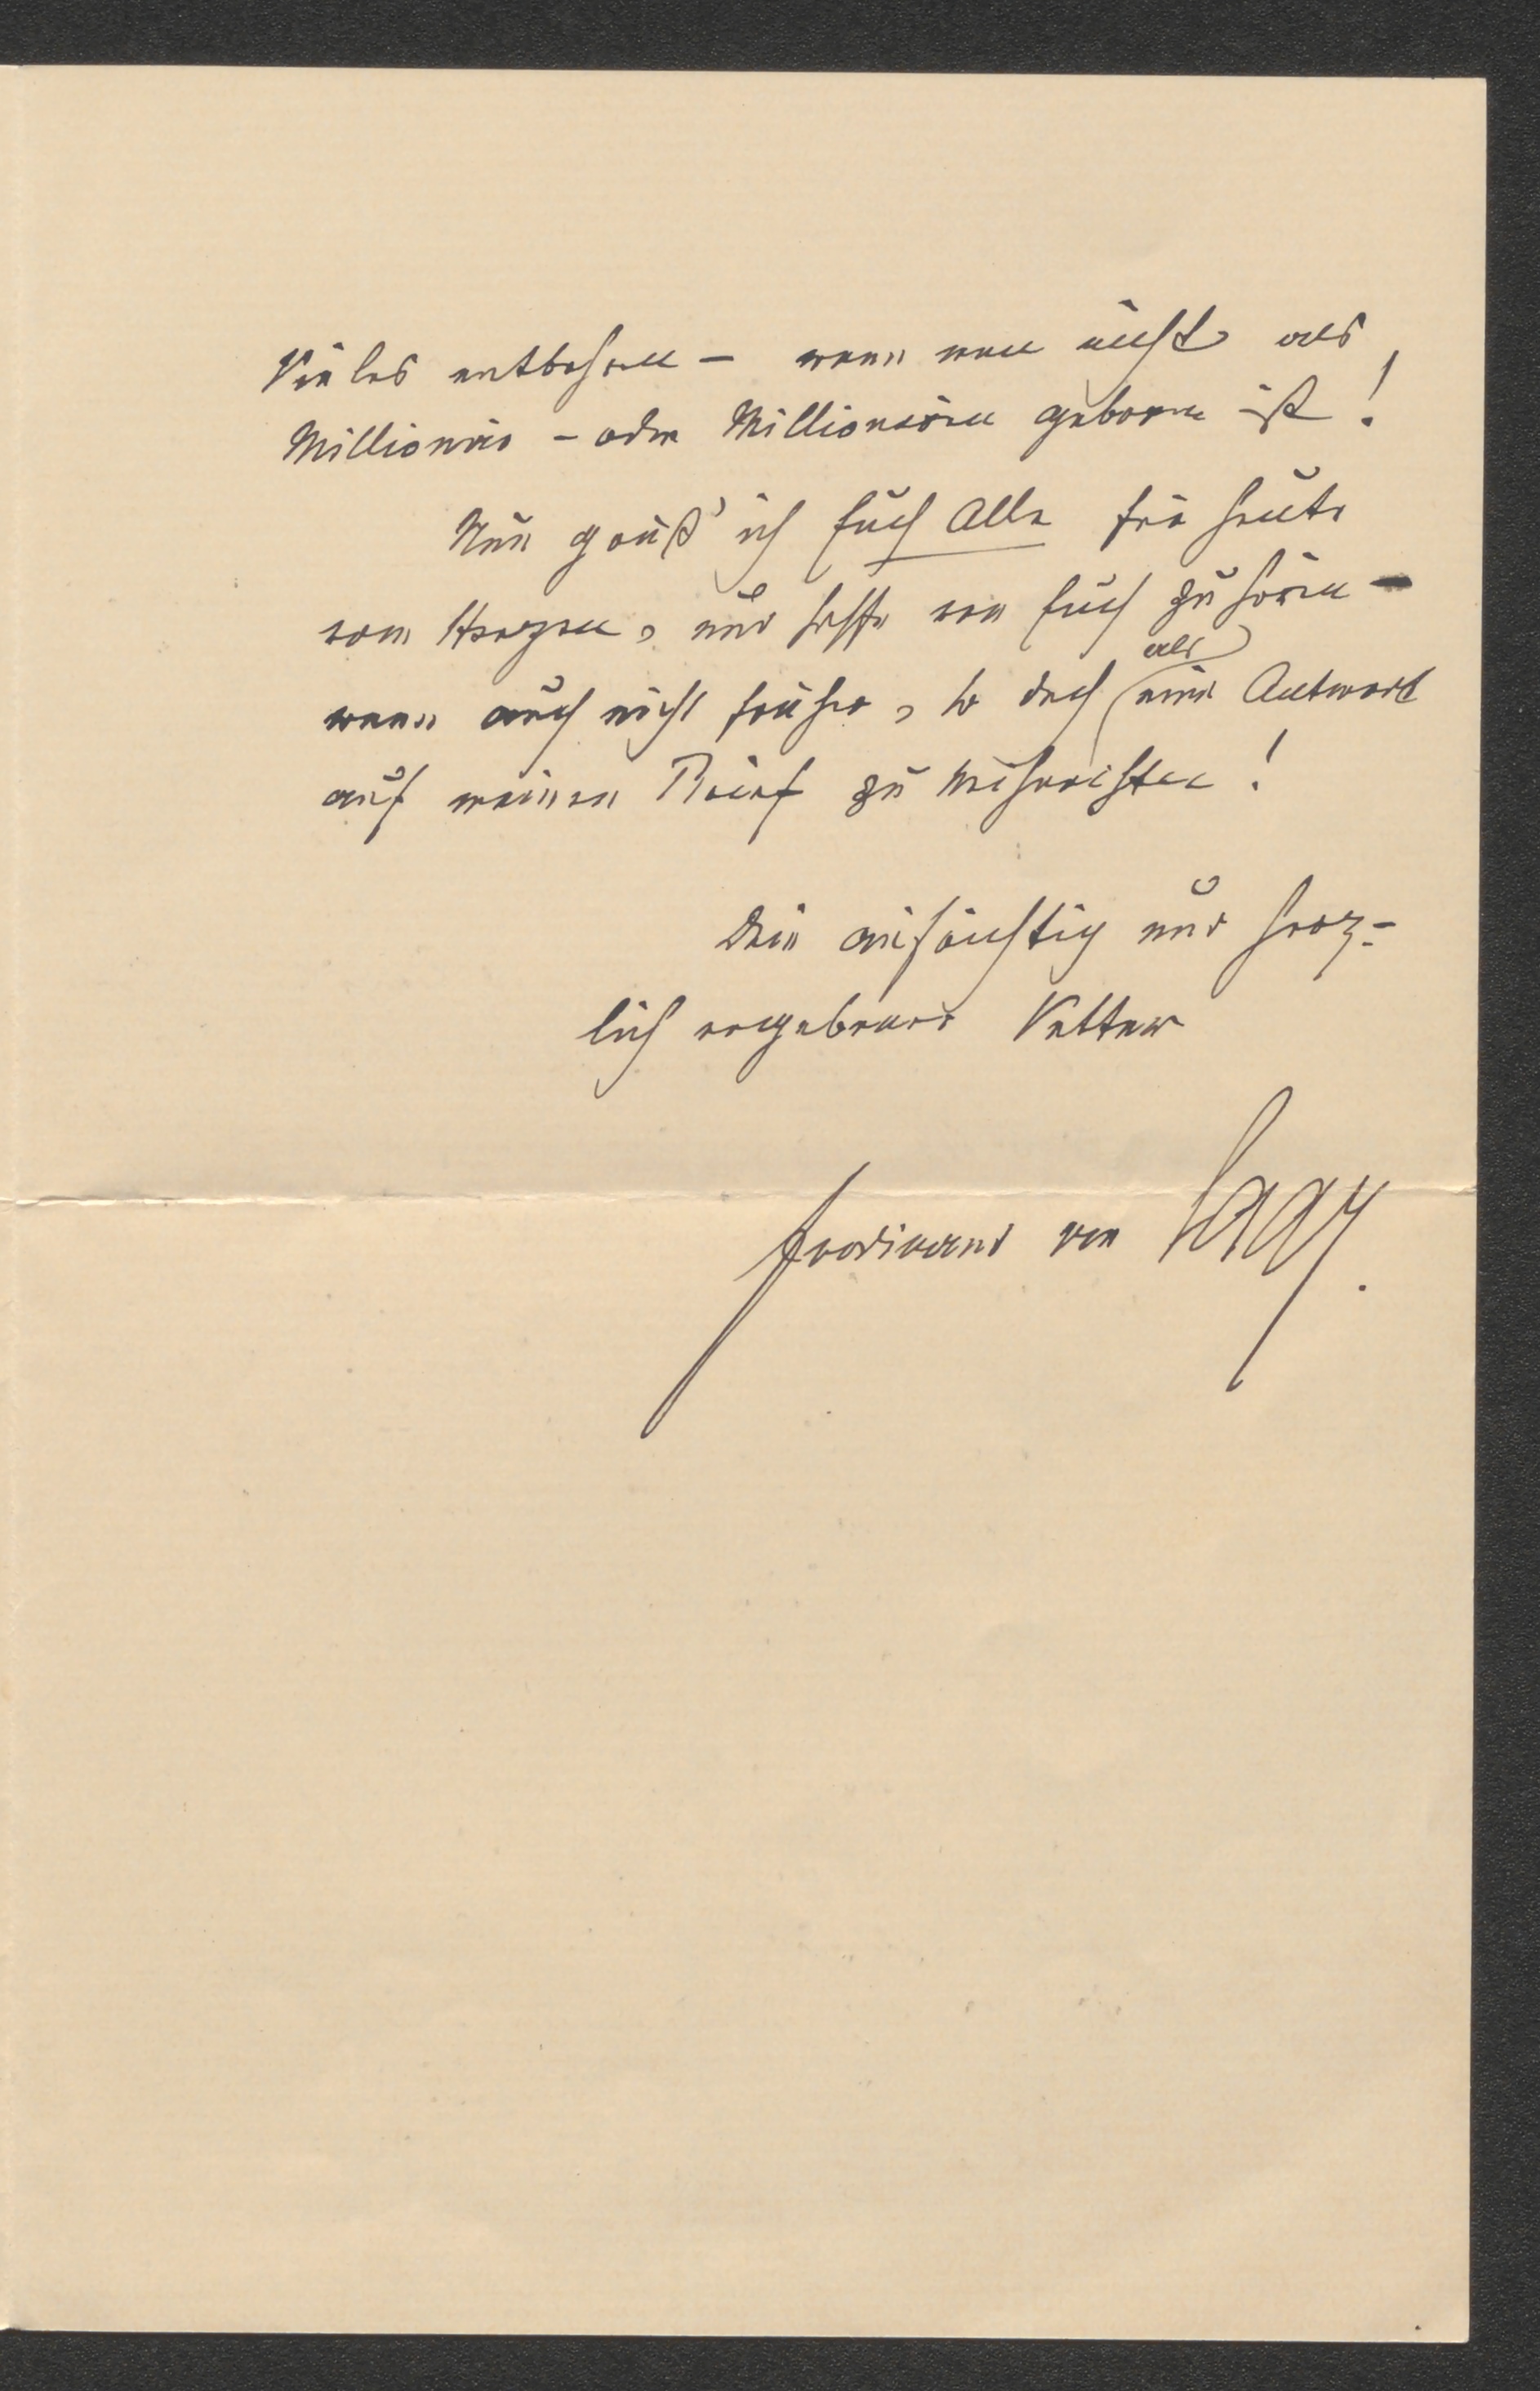 Vieles entbehren – wenn man nicht als
Millionär – oder Millionärin geboren ist!
Nun grüß' ich Euch Alle für heute
vom Herzen, und hoffe von Euch zu hören –
wenn auch nicht früher, so doch als eine Antwort
auf meinen Brief zu
Dein aufrichtig und herz-
lich ergebener Vetter
Ferdinand von Saar.